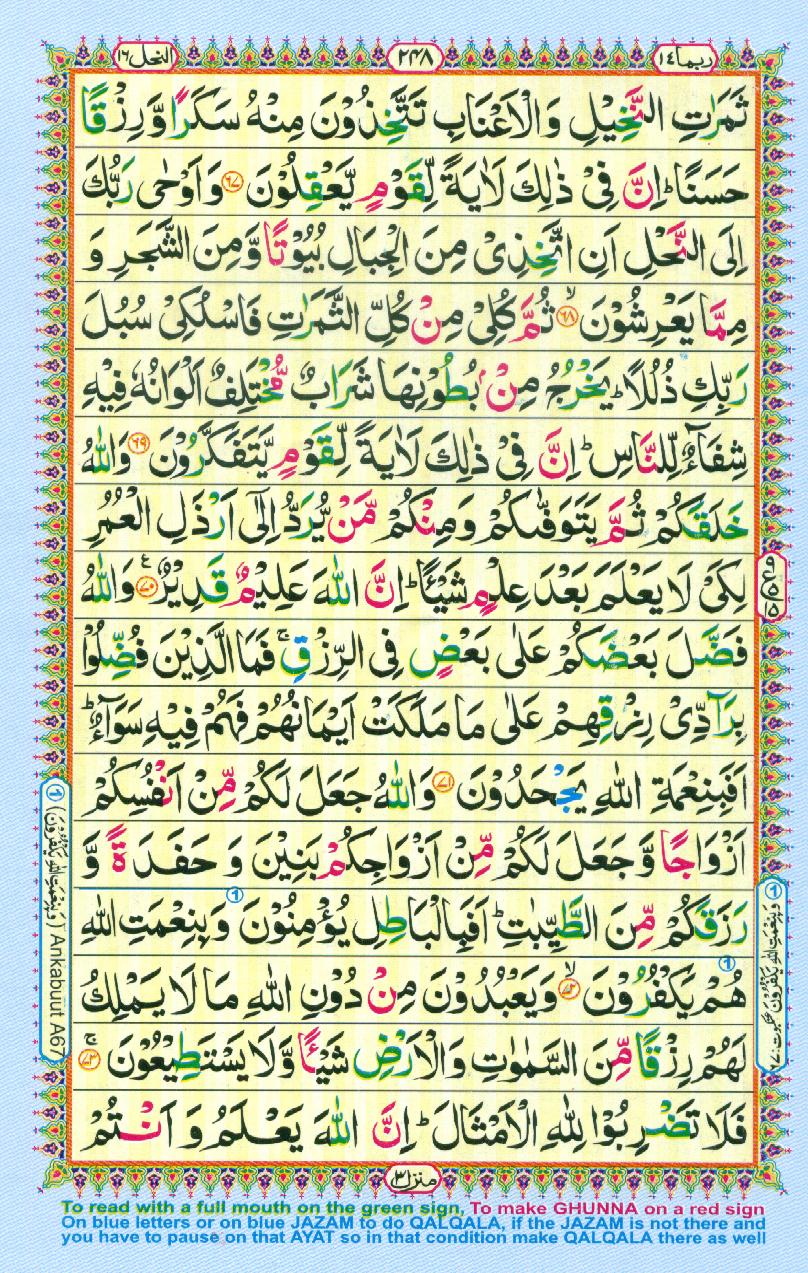 النحل ١٦
٢٤٨
ربما ١٤
ثَمَرٰتِ النَّخِيْلِ وَالْاَعْنَابِ تَتَّخِذُوْنَ مِنْهُ سَكَرًا وَّرِزْقًا
حَسَنًا ؕ اِنَّ فِىْ ذٰلِكَ لَاٰيَةً لِّقَوْمٍ يَّعْقِلُوْنَ ﴿٦٧﴾ وَاَوْحٰى رَبُّكَ
اِلَى النَّحْلِ اَنِ اتَّخِذِىْ مِنَ الْجِبَالِ بُيُوْتًا وَّمِنَ الشَّجَرِ وَ
مِمَّا يَعْرِشُوْنَ ۙ﴿٦٨﴾ ثُمَّ كُلِىْ مِنْ كُلِّ الثَّمَرٰتِ فَاسْلُكِىْ سُبُلَ
رَبِّكِ ذُلُلًا ؕ يَخْرُجُ مِنْۢ بُطُوْنِهَا شَرَابٌ مُّخْتَلِفٌ اَلْوَانُهٗ فِيْهِ
شِفَآءٌ لِّلنَّاسِ ؕ اِنَّ فِىْ ذٰلِكَ لَاٰيَةً لِّقَوْمٍ يَّتَفَكَّرُوْنَ ﴿٦٩﴾ وَاللّٰهُ
خَلَقَكُمْ ثُمَّ يَتَوَفّٰىكُمْ وَمِنْكُمْ مَّنْ يُّرَدُّ اِلٰٓى اَرْذَلِ الْعُمُرِ
لِكَىْ لَا يَعْلَمَ بَعْدَ عِلْمٍ شَيْـًٔا ؕ اِنَّ اللّٰهَ عَلِيْمٌ قَدِيْرٌ ﴿٧٠﴾ ع وَاللّٰهُ
فَضَّلَ بَعْضَكُمْ عَلٰى بَعْضٍ فِى الرِّزْقِ ۚ فَمَا الَّذِيْنَ فُضِّلُوْا
بِرَآدِّىْ رِزْقِهِمْ عَلٰى مَا مَلَكَتْ اَيْمَانُهُمْ فَهُمْ فِيْهِ سَوَآءٌ ؕ
اَفَبِنِعْمَةِ اللّٰهِ يَجْحَدُوْنَ ﴿٧١﴾ وَاللّٰهُ جَعَلَ لَكُمْ مِّنْ اَنْفُسِكُمْ
اَزْوَاجًا وَّجَعَلَ لَكُمْ مِّنْ اَزْوَاجِكُمْ بَنِيْنَ وَحَفَدَةً وَّ
رَزَقَكُمْ مِّنَ الطَّيِّبٰتِ ؕ اَفَبِالْبَاطِلِ يُؤْمِنُوْنَ ① وَبِنِعْمَتِ اللّٰهِ
هُمْ يَكْفُرُوْنَ ① ۙ﴿٧٢﴾ وَيَعْبُدُوْنَ مِنْ دُوْنِ اللّٰهِ مَا لَا يَمْلِكُ
لَهُمْ رِزْقًا مِّنَ السَّمٰوٰتِ وَالْاَرْضِ شَيْـًٔا وَّلَا يَسْتَطِيْعُوْنَ ۚ﴿٧٣﴾
فَلَا تَضْرِبُوْا لِلّٰهِ الْاَمْثَالَ ؕ اِنَّ اللّٰهَ يَعْلَمُ وَاَنْتُمْ
① (وَبِنِعْمَتِ اللّٰهِ يَكْفُرُوْنَ) Ankabuut A67
① وَبِنِعْمَتِ اللّٰهِ يَكْفُرُوْنَ عنكبوت
منزل ٣
To read with a full mouth on the green sign, To make GHUNNA on a red sign
On blue letters or on blue JAZAM to do QALQALA, if the JAZAM is not there and
you have to pause on that AYAT so in that condition make QALQALA there as well